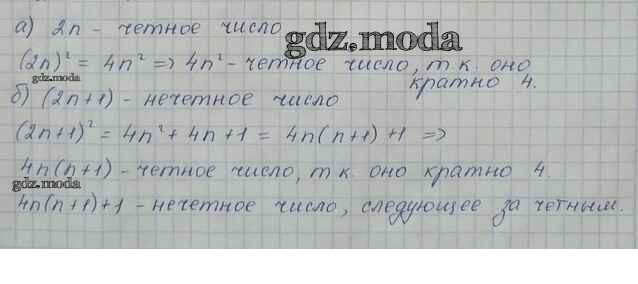 а) 2n - четное число
gdz.moda
(2n)² = 4n² => 4n² - четное число, т.к. оно
gdz.moda
кратно 4.
б) (2n+1) - нечетное число
(2n+1)² = 4n² + 4n + 1 = 4n(n+1) + 1 =>
4n(n+1) - четное число, т.к. оно кратно 4.
gdz.moda
4n(n+1)+1 - нечетное число, следующее за четным.